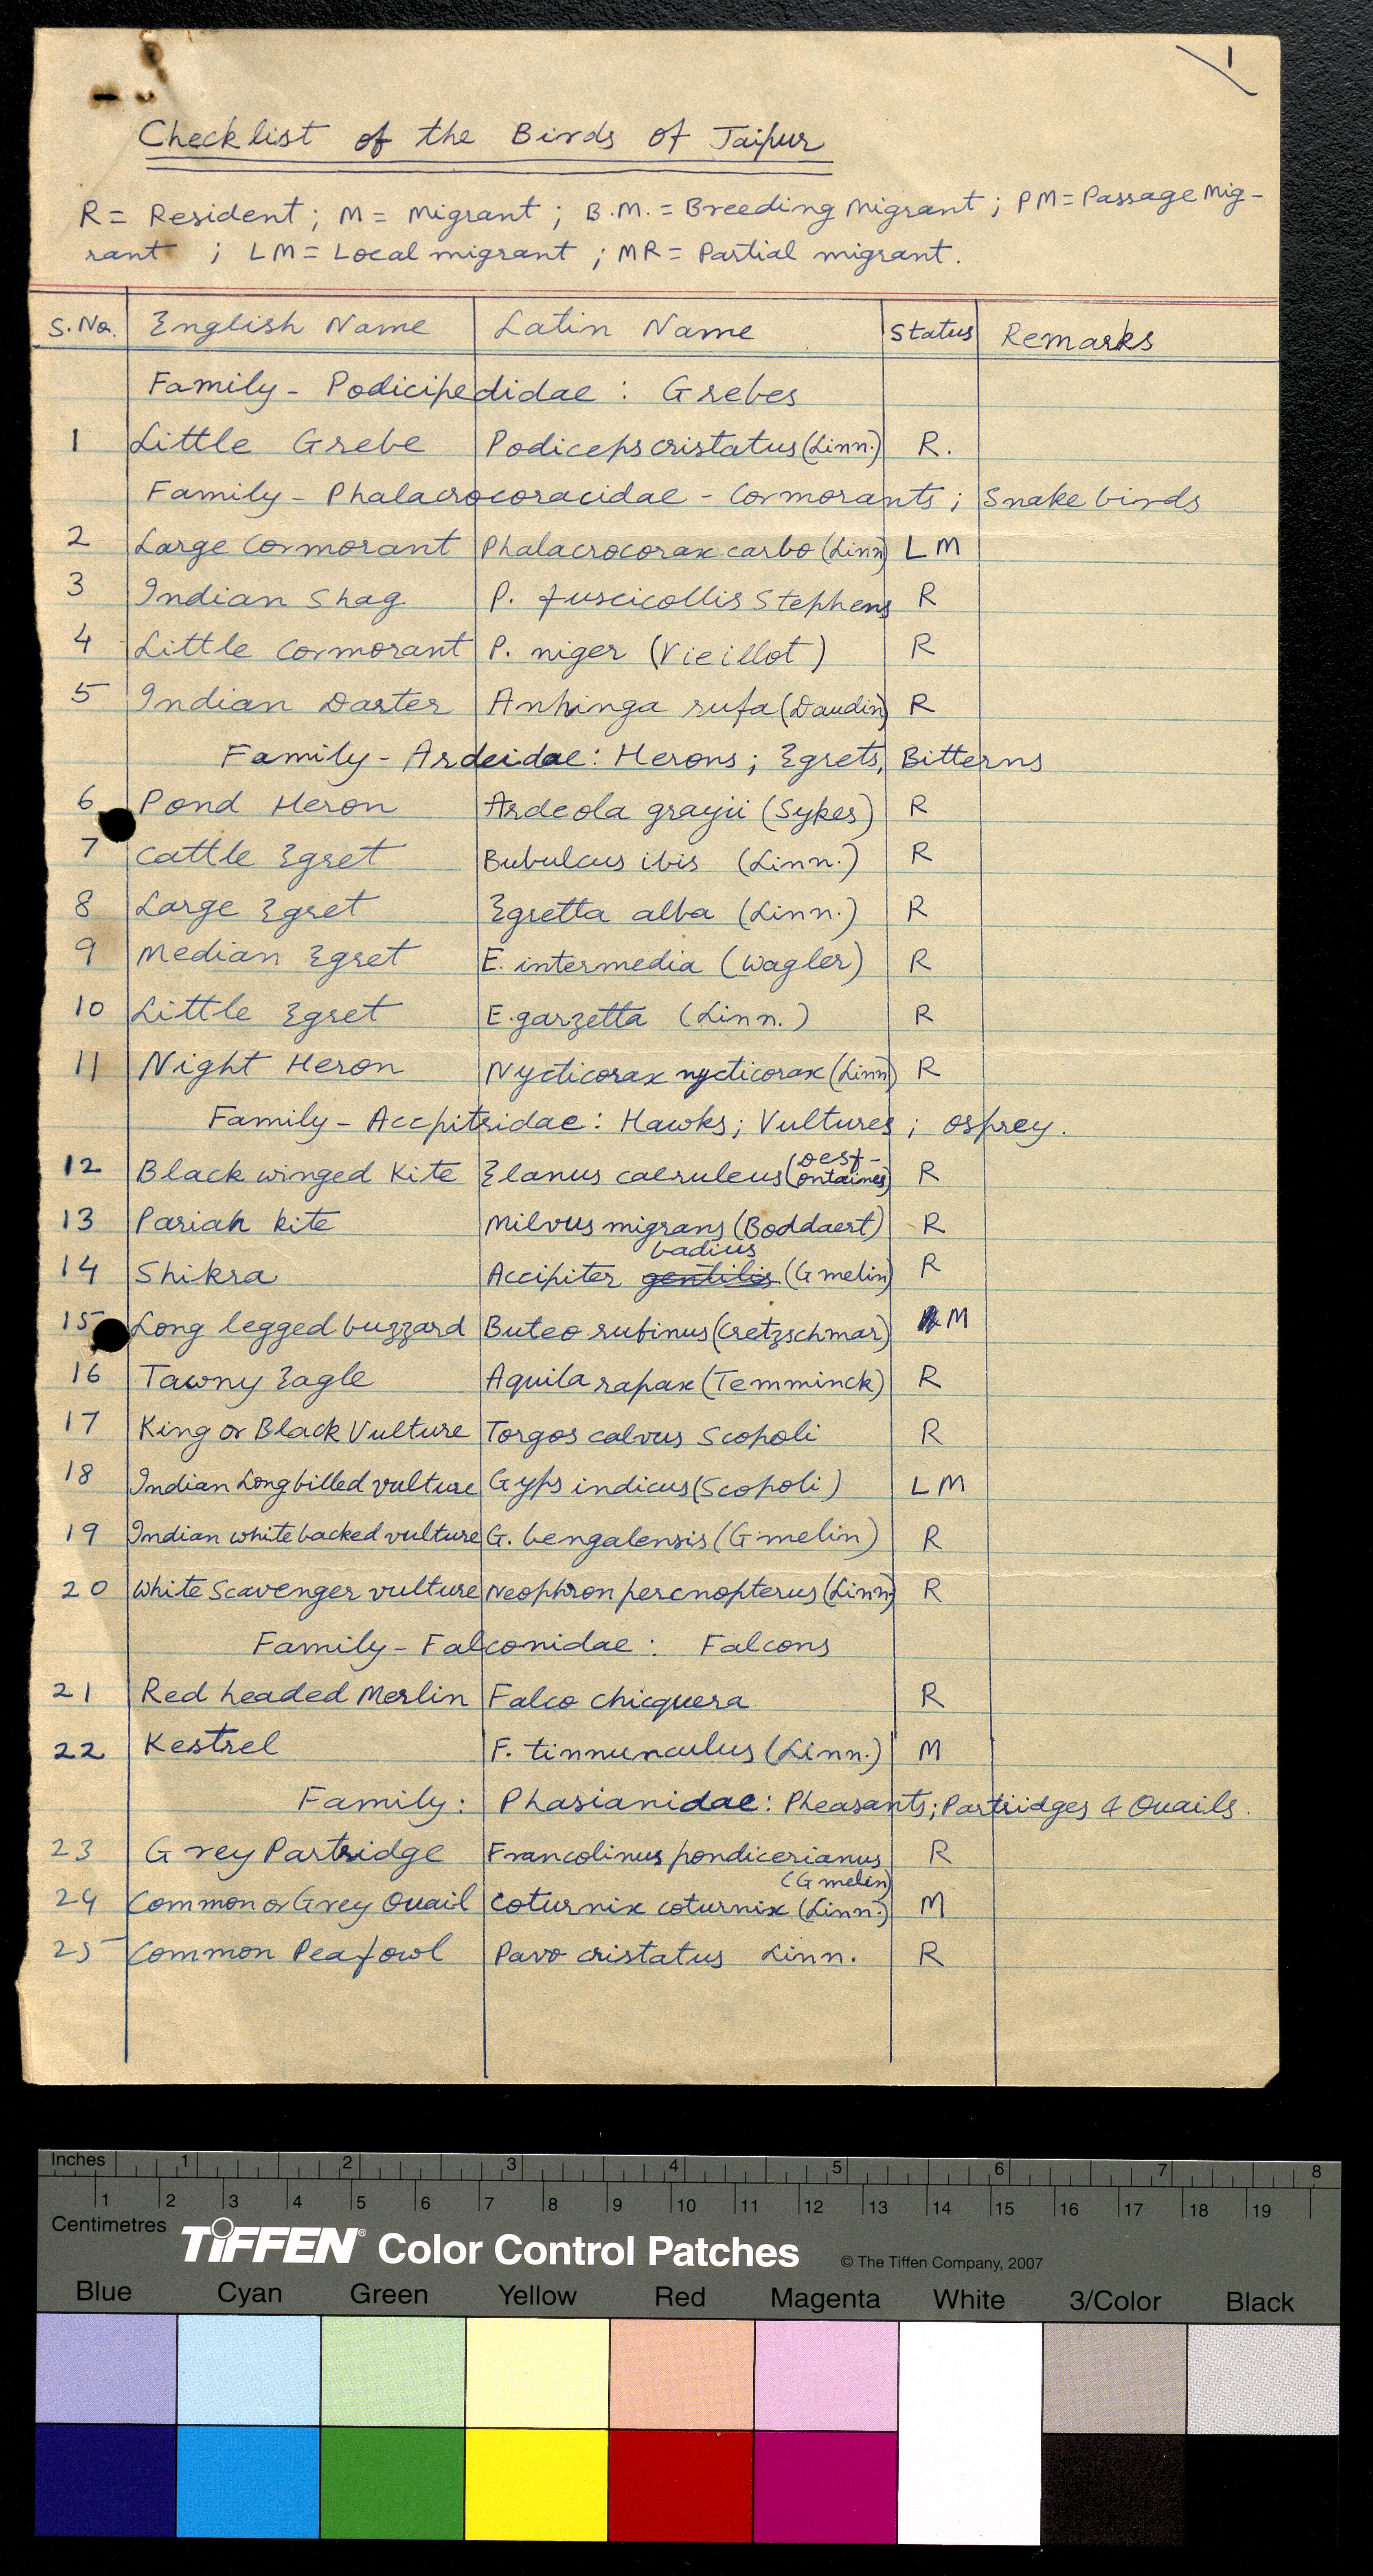 1
Checklist of the Birds of Jaipur
R = Resident ; M = Migrant ; B.M. = Breeding Migrant ; PM = Passage Mig-
rant ; LM = Local migrant ; MR = Partial migrant.
S.No. English Name Latin Name Status Remarks
Family - Podicipedidae : Grebes
1 Little Grebe Podiceps cristatus (Linn.) R.
Family - Phalacrocoracidae - Cormorants ; Snake birds
2 Large Cormorant Phalacrocorax carbo (Linn) LM
3 Indian Shag P. fuscicollis Stephens R
4 Little Cormorant P. niger (Vieillot) R
5 Indian Darter Anhinga rufa (Daudin) R
Family - Ardeidae : Herons ; Egrets, Bitterns
6 Pond Heron Ardeola grayii (Sykes) R
7 Cattle Egret Bubulcus ibis (Linn.) R
8 Large Egret Egretta alba (Linn.) R
9 Median Egret E. intermedia (Wagler) R
10 Little Egret E. garzetta (Linn.) R
11 Night Heron Nycticorax nycticorax (Linn) R
Family - Accpitridae : Hawks ; Vultures ; Osprey.
12 Black winged Kite Elanus caeruleus (Desf-
ontaines) R
13 Pariah kite Milvus migrans (Boddaert) R
badius
14 Shikra Accipiter gentilis (Gmelin) R
15 Long legged buzzard Buteo rufinus (Cretzschmar) M
16 Tawny Eagle Aquila rapax (Temminck) R
17 King or Black Vulture Torgos calvus Scopoli R
18 Indian Longbilled vulture Gyps indicus (Scopoli) LM
19 Indian white backed vulture G. bengalensis (Gmelin) R
20 White Scavenger vulture Neophron percnopterus (Linn) R
Family - Falconidae : Falcons
21 Red headed Merlin Falco chicquera R
22 Kestrel F. tinnunculus (Linn.) M
Family : Phasianidae : Pheasants ; Partridges & Quails.
23 Grey Partridge Francolinus pondicerianus R
(Gmelin)
24 Common or Grey Quail Coturnix coturnix (Linn.) M
25 Common Peafowl Pavo cristatus Linn. R
Inches 1 2 3 4 5 6 7 8
1 2 3 4 5 6 7 8 9 10 11 12 13 14 15 16 17 18 19
Centimetres
TIFFEN® Color Control Patches © The Tiffen Company, 2007
Blue Cyan Green Yellow Red Magenta White 3/Color Black